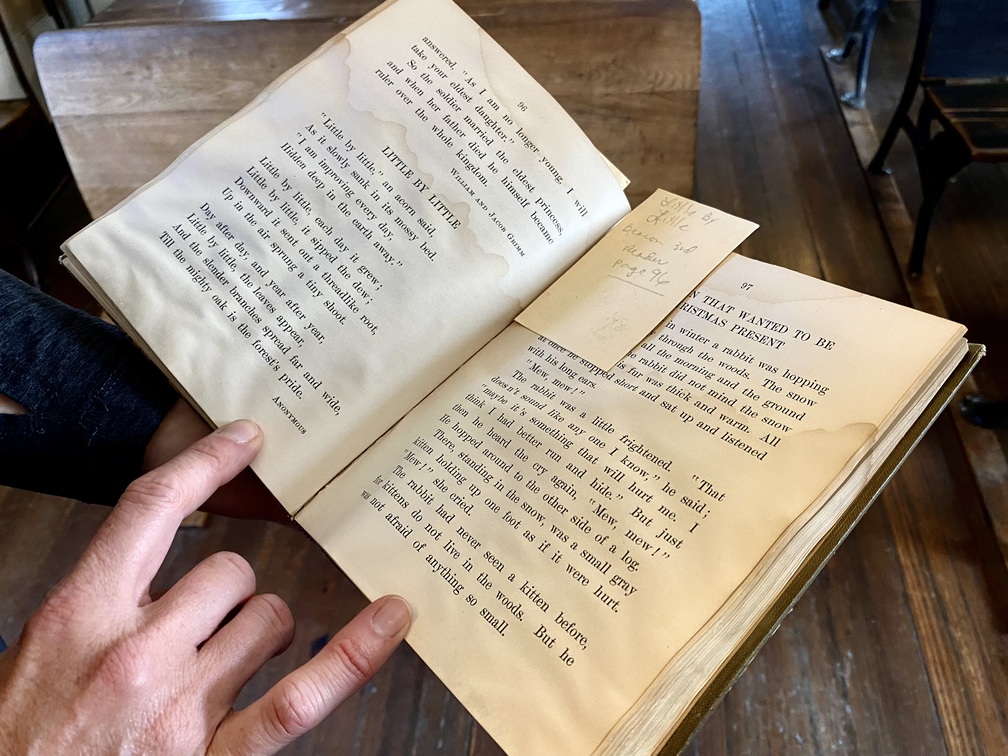 96
answered, "As I am no longer young, I will
take your eldest daughter."
So the soldier married the eldest princess,
and when her father died he himself became
ruler over the whole kingdom.
WILLIAM AND JACOB GRIMM
LITTLE BY LITTLE
"Little by little," an acorn said,
As it slowly sank in its mossy bed.
"I am improving every day,
Hidden deep in the earth away."
Little by little, each day it grew;
Little by little, it sipped the dew;
Downward it sent out a threadlike root,
Up in the air sprung a tiny shoot.
Day after day, and year after year,
Little by little, the leaves appear,
And the slender branches spread far and wide,
Till the mighty oak is the forest's pride.
ANONYMOUS
Little By
Little
Beacon 3rd
reader
page 96
97
N THAT WANTED TO BE
RISTMAS PRESENT
in winter a rabbit was hopping
through the woods. The snow
all the morning and the ground
rabbit did not mind the snow
his fur was thick and warm. All
at once he stopped short and sat up and listened
with his long ears.
"Mew, mew!"
The rabbit was a little frightened. "That
doesn't sound like any one I know," he said;
"maybe it's something that will hurt me. I
think I had better run and hide." But just
then he heard the cry again, "Mew, mew!"
He hopped around to the other side of a log.
There, standing in the snow, was a small gray
kitten holding up one foot as if it were hurt.
"Mew!" she cried.
The rabbit had never seen a kitten before,
for kittens do not live in the woods. But he
was not afraid of anything so small.